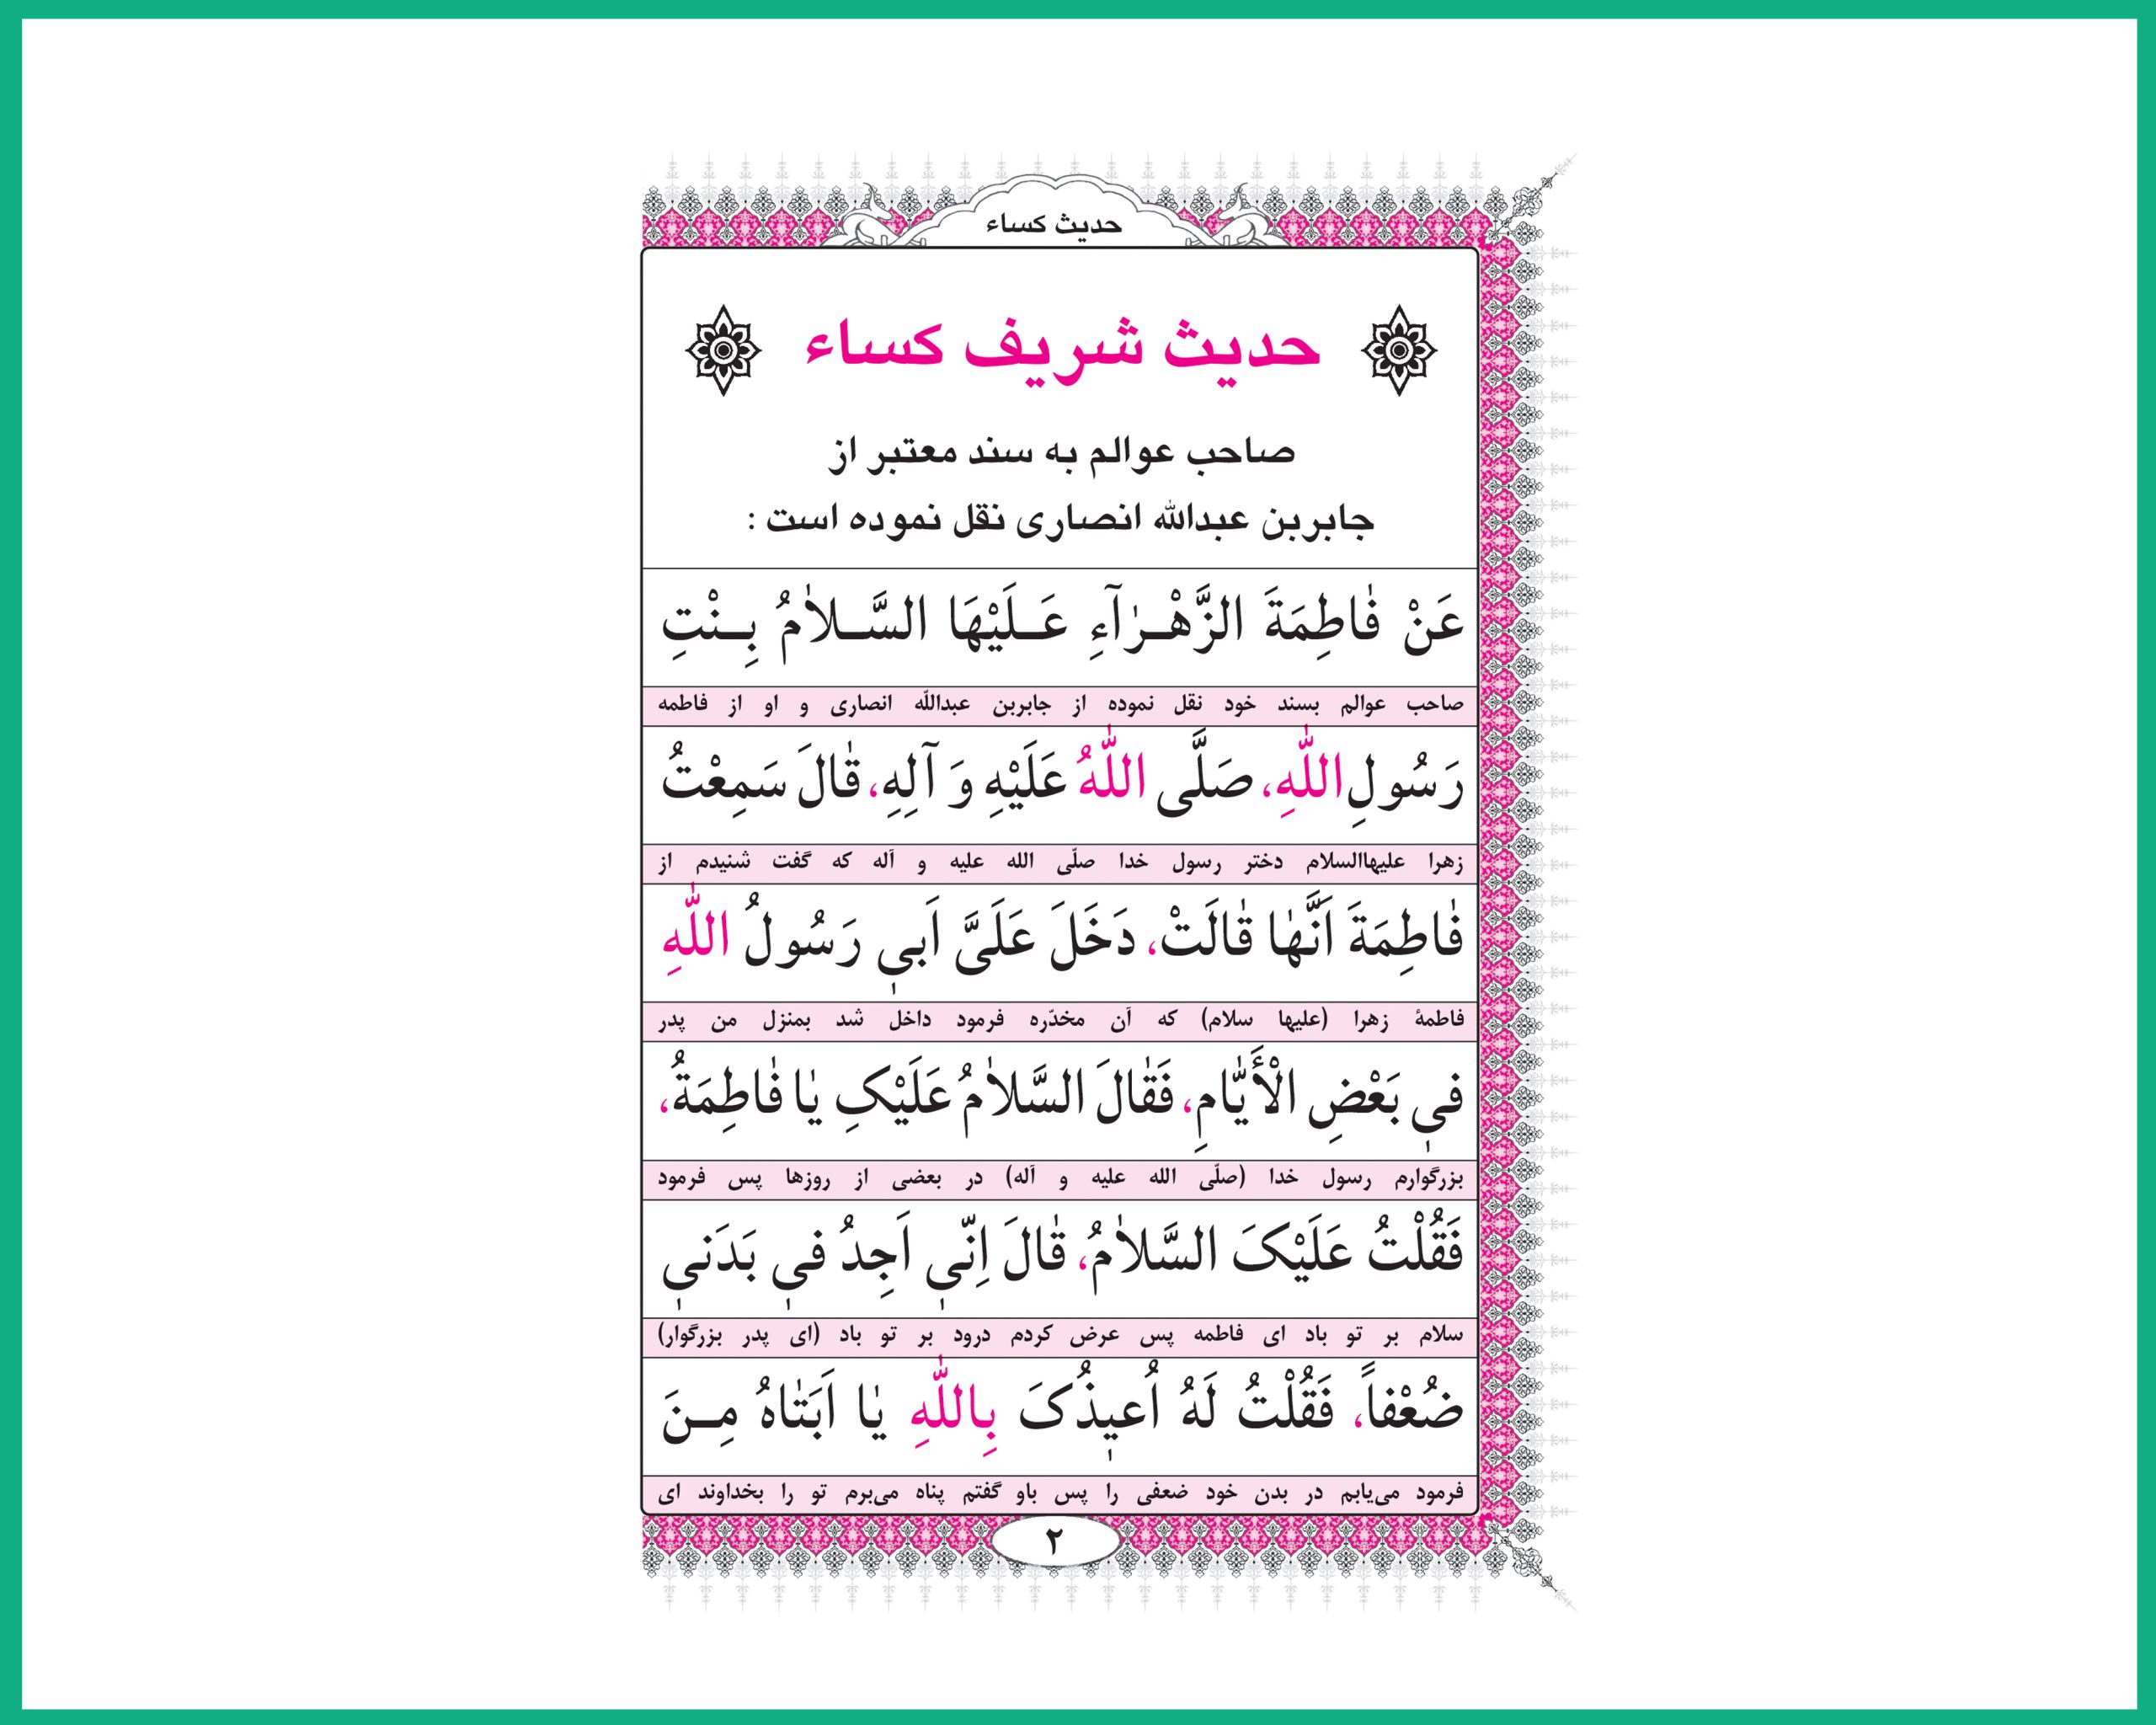 حدیث کساء
حدیث شریف کساء
صاحب عوالم به سند معتبر از
جابربن عبدالله انصاری نقل نموده است :
عَنْ فٰاطِمَةَ الزَّهْـرٰآءِ عَـلَیْهَا السَّـلاٰمُ بِـنْتِ
صاحب عوالم بسند خود نقل نموده از جابربن عبداللّه انصاری و او از فاطمه
رَسُولِ اللّٰهِ، صَلَّی اللّٰهُ عَلَیْهِ وَ آلِهِ، قٰالَ سَمِعْتُ
زهرا علیهاالسلام دختر رسول خدا صلّی الله علیه و آله که گفت شنیدم از
فٰاطِمَةَ اَنَّهٰا قٰالَتْ، دَخَلَ عَلَیَّ اَبیٖ رَسُولُ اللّٰهِ
فاطمهٔ زهرا (علیها سلام) که آن مخدّره فرمود داخل شد بمنزل من پدر
فیٖ بَعْضِ الْأَیّٰامِ، فَقٰالَ السَّلاٰمُ عَلَیْکِ یٰا فٰاطِمَةُ،
بزرگوارم رسول خدا (صلّی الله علیه و آله) در بعضی از روزها پس فرمود
فَقُلْتُ عَلَیْکَ السَّلاٰمُ، قٰالَ اِنّیٖ اَجِدُ فیٖ بَدَنیٖ
سلام بر تو باد ای فاطمه پس عرض کردم درود بر تو باد (ای پدر بزرگوار)
ضُعْفاً، فَقُلْتُ لَهُ اُعیٖذُکَ بِاللّٰهِ یٰا اَبَتٰاهُ مِـنَ
فرمود می‌یابم در بدن خود ضعفی را پس باو گفتم پناه می‌برم تو را بخداوند ای
۲